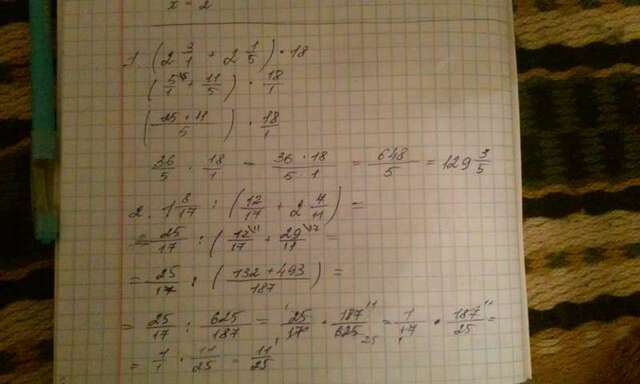 x = 2
1. (2 3/1 + 2 1/5) · 18
(5/1 \5 + 11/5) · 18/1
(25 + 11 / 5) · 18/1
36/5 · 18/1 = 36 · 18 / 5 · 1 = 648/5 = 129 3/5
2. 1 8/17 : (12/17 + 2 7/11) =
= 25/17 : (12/17 \11 + 29/11 \17) =
= 25/17 : (132 + 493 / 187) =
= 25/17 : 625/187 = 25/17 · 187/625 = 1/17 · 187/25 =
= 1/1 · 11/25 = 11/25